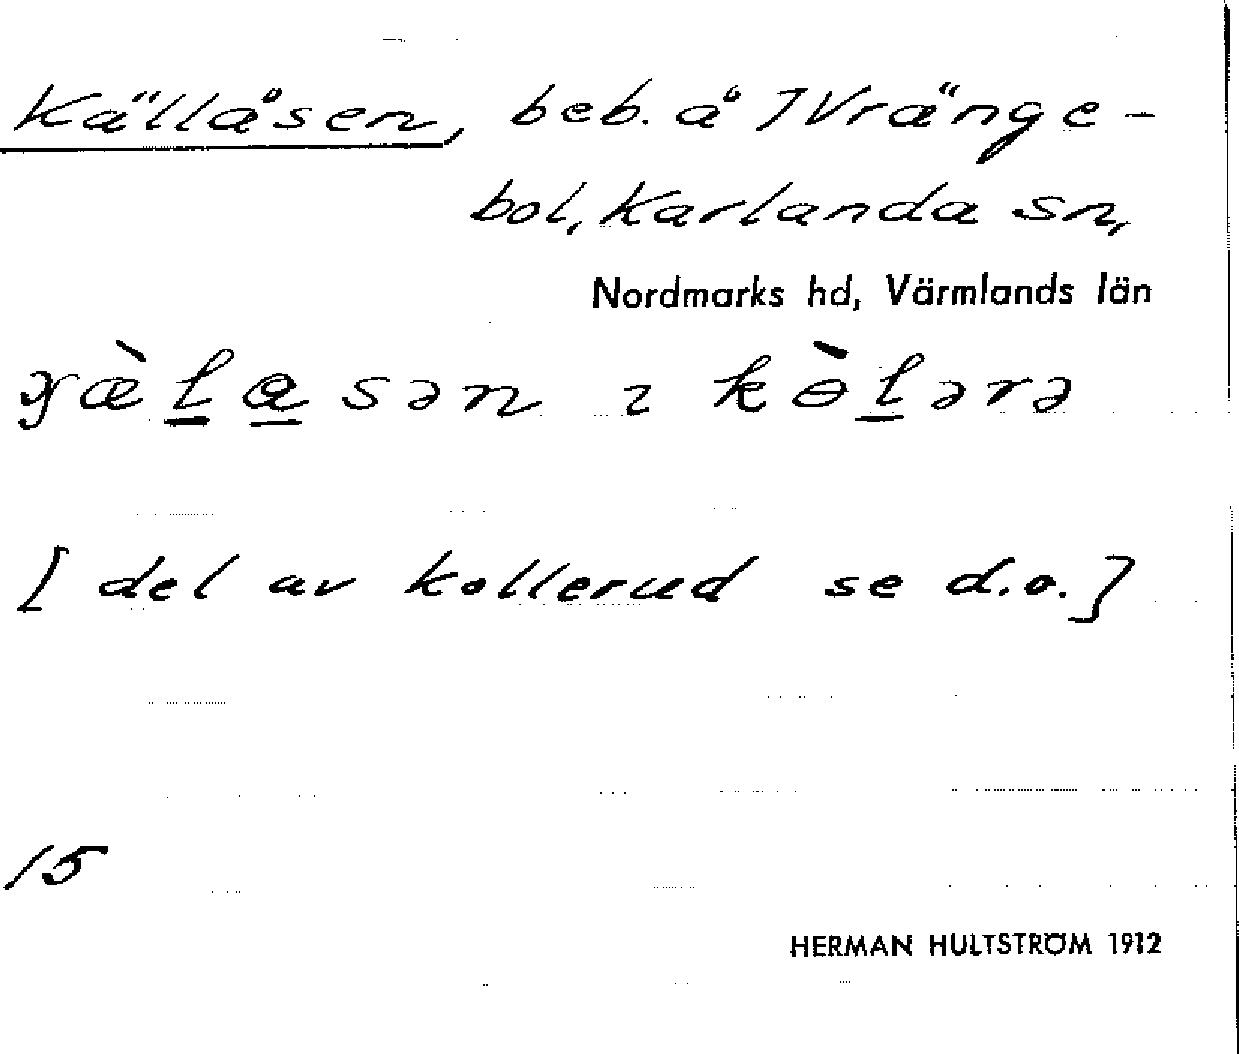 Källåsen, beb. å 7 Vränge-
bol, Karlanda sn,
Nordmarks hd, Värmlands län
sən ɩ
[ del av kollerud se d.o.]
15
HERMAN HULTSTRÖM 1912